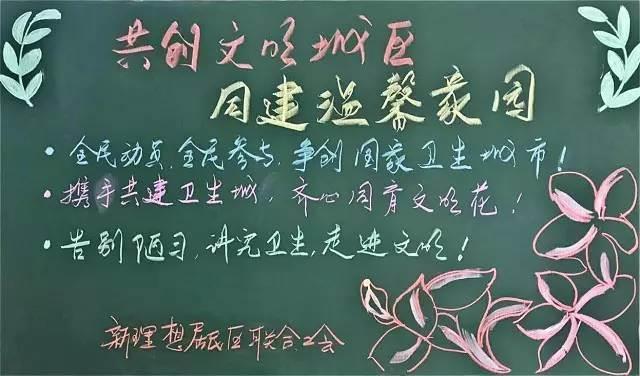 共创文明城区
同建温馨家园
• 全民动员、全民参与、争创国家卫生城市！
• 携手共建卫生城，齐心同育文明花！
• 告别陋习，讲究卫生，走进文明！
新理想居民区联合工会